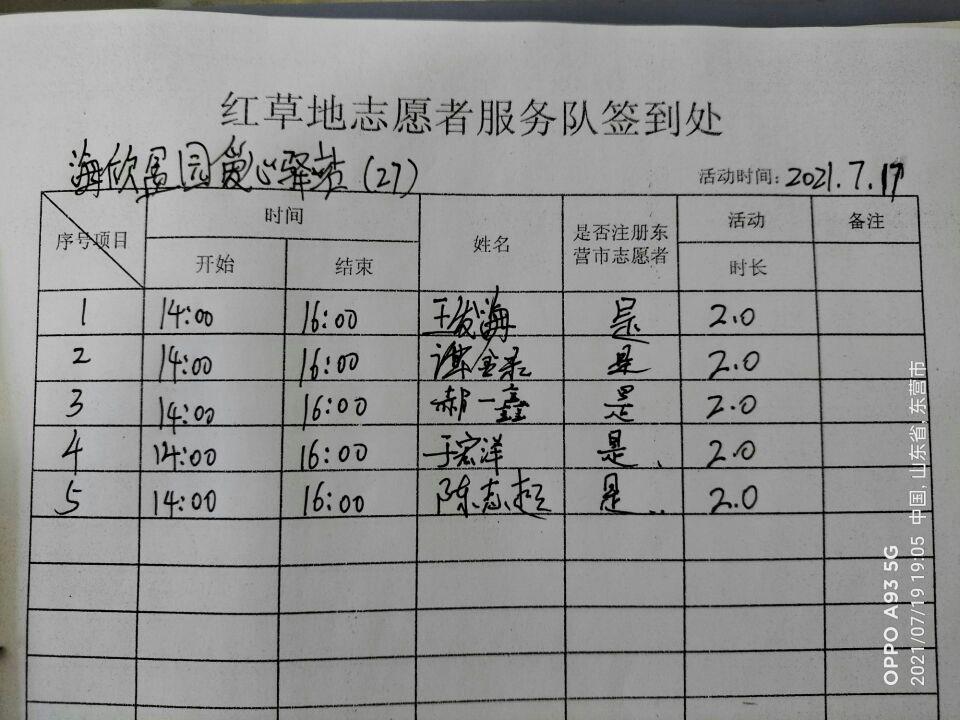 红草地志愿者服务队签到处
海欣置园爱心驿站(27)
活动时间:2021.7.17
序号项目 时间 姓名 是否注册东营市志愿者 活动 备注
开始 结束 时长
1 14:00 16:00 王发海 是 2.0
2 14:00 16:00 谭金录 是 2.0
3 14:00 16:00 郝一鑫 是 2.0
4 14:00 16:00 于宏洋 是 2.0
5 14:00 16:00 陈志超 是 2.0
OPPO A93 5G
2021/07/19 19:05 中国,山东省,东营市